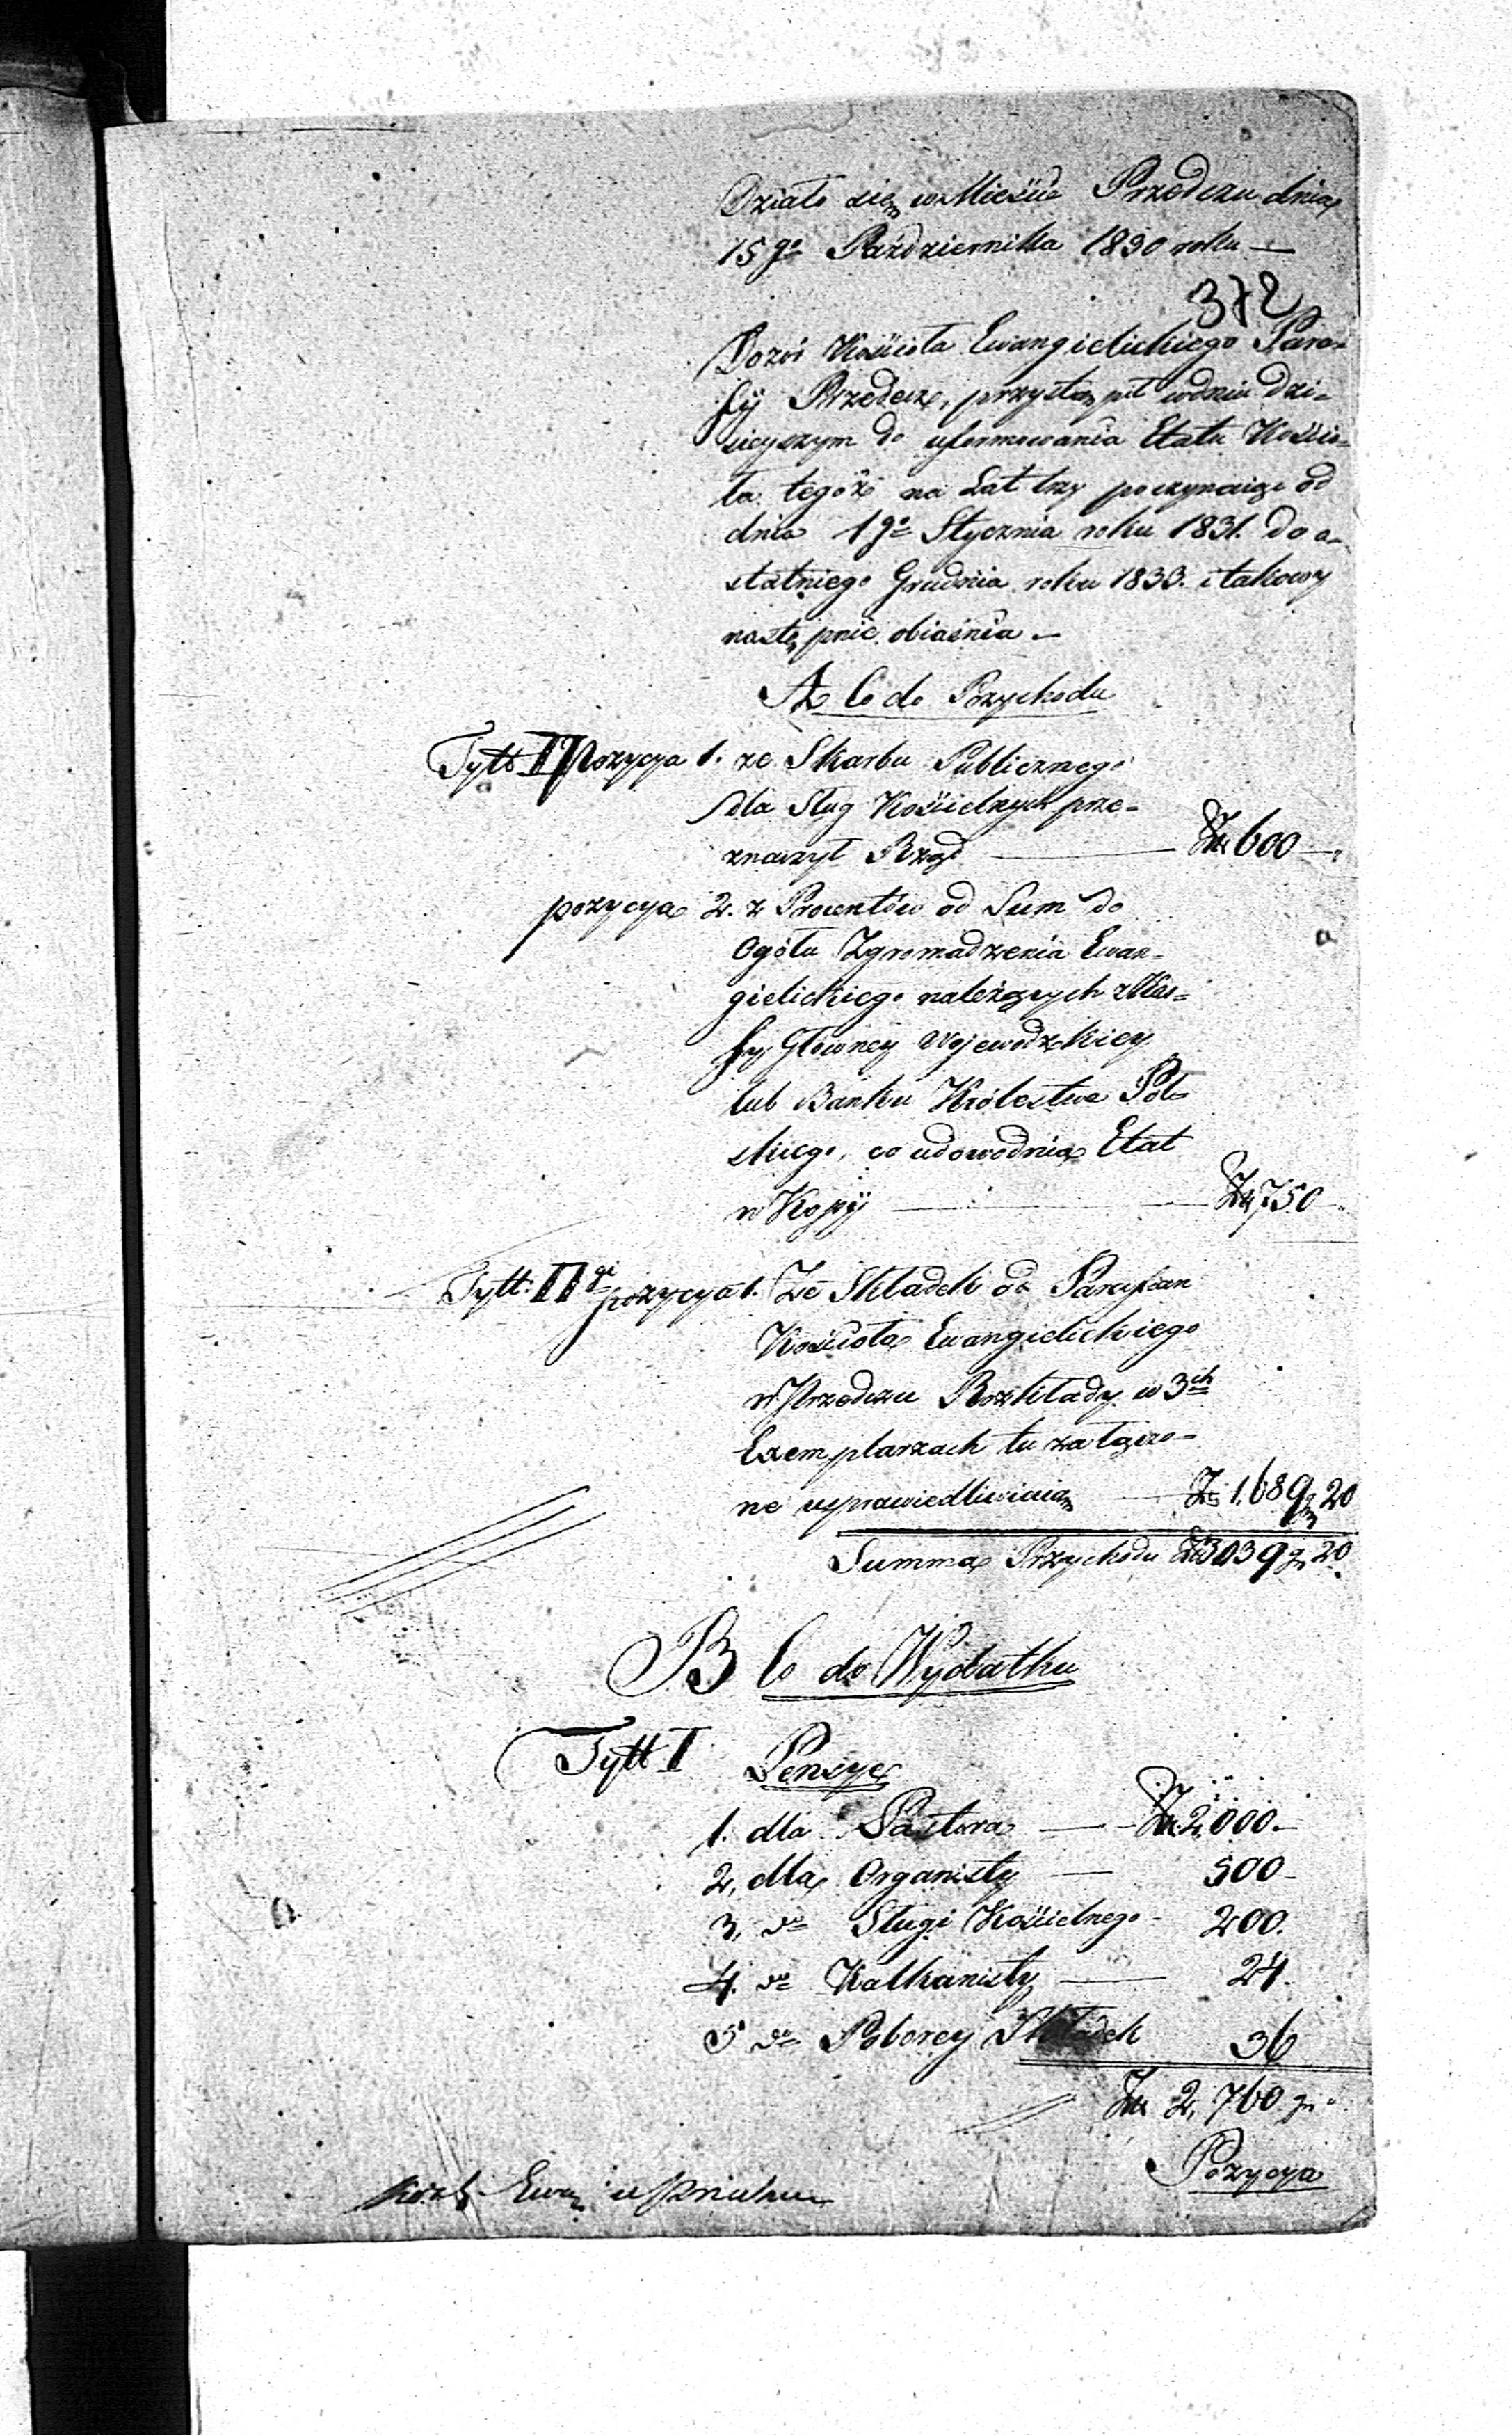 Działo się w Mieście Przedczu dnia
15go Października 1830 roku —
372
Dozór Kościoła Ewangielickiego Para-
fij Przedecz, przystąpił w dniu dzi-
sieyszym do uformowania Etatu Kościo-
ła tegoż na Lat trzy poczynaiąc od
dnia 1go Stycznia roku 1831. do o-
statniego Grudnia roku 1833. i takowy
następnie obiaśnia —
A Co do Przychodu
Tytł I pozycya 1. ze Skarbu Publicznego
dla Sług Kościelnych prze-
znaczył Rząd — Zł 600 —
pozycya 2. z Procentów od Sum do
Ogółu Zgromadzenia Ewan-
gielickiego należących z Kas-
sy Główney Wojewodzkiey
lub Banku Królestwa Pol-
skiego, co udowodnia Etat
w Kopij — Zł 750
Tytł: IIgi pozycya 1. Ze Składek od Parafian
Kościoła Ewangielickiego
w Przedczu Rozkłady w 3ch
Exemplarzach tu załączo-
ne usprawiedliwiaią — Zł 1,689 g 20
Summa Przychodu Zł 3039 g 20.
B Co do Wydatku
Tytł I Pensye
1. dla Pastora — Zł 2,000. —
2, dla Organisty — 500 —
3, do Sługi Kościelnego - 200.
4. do Kalkanisty — 24.
5 do Poborcy Składek 36
Zł 2,760 g „
Pozycya